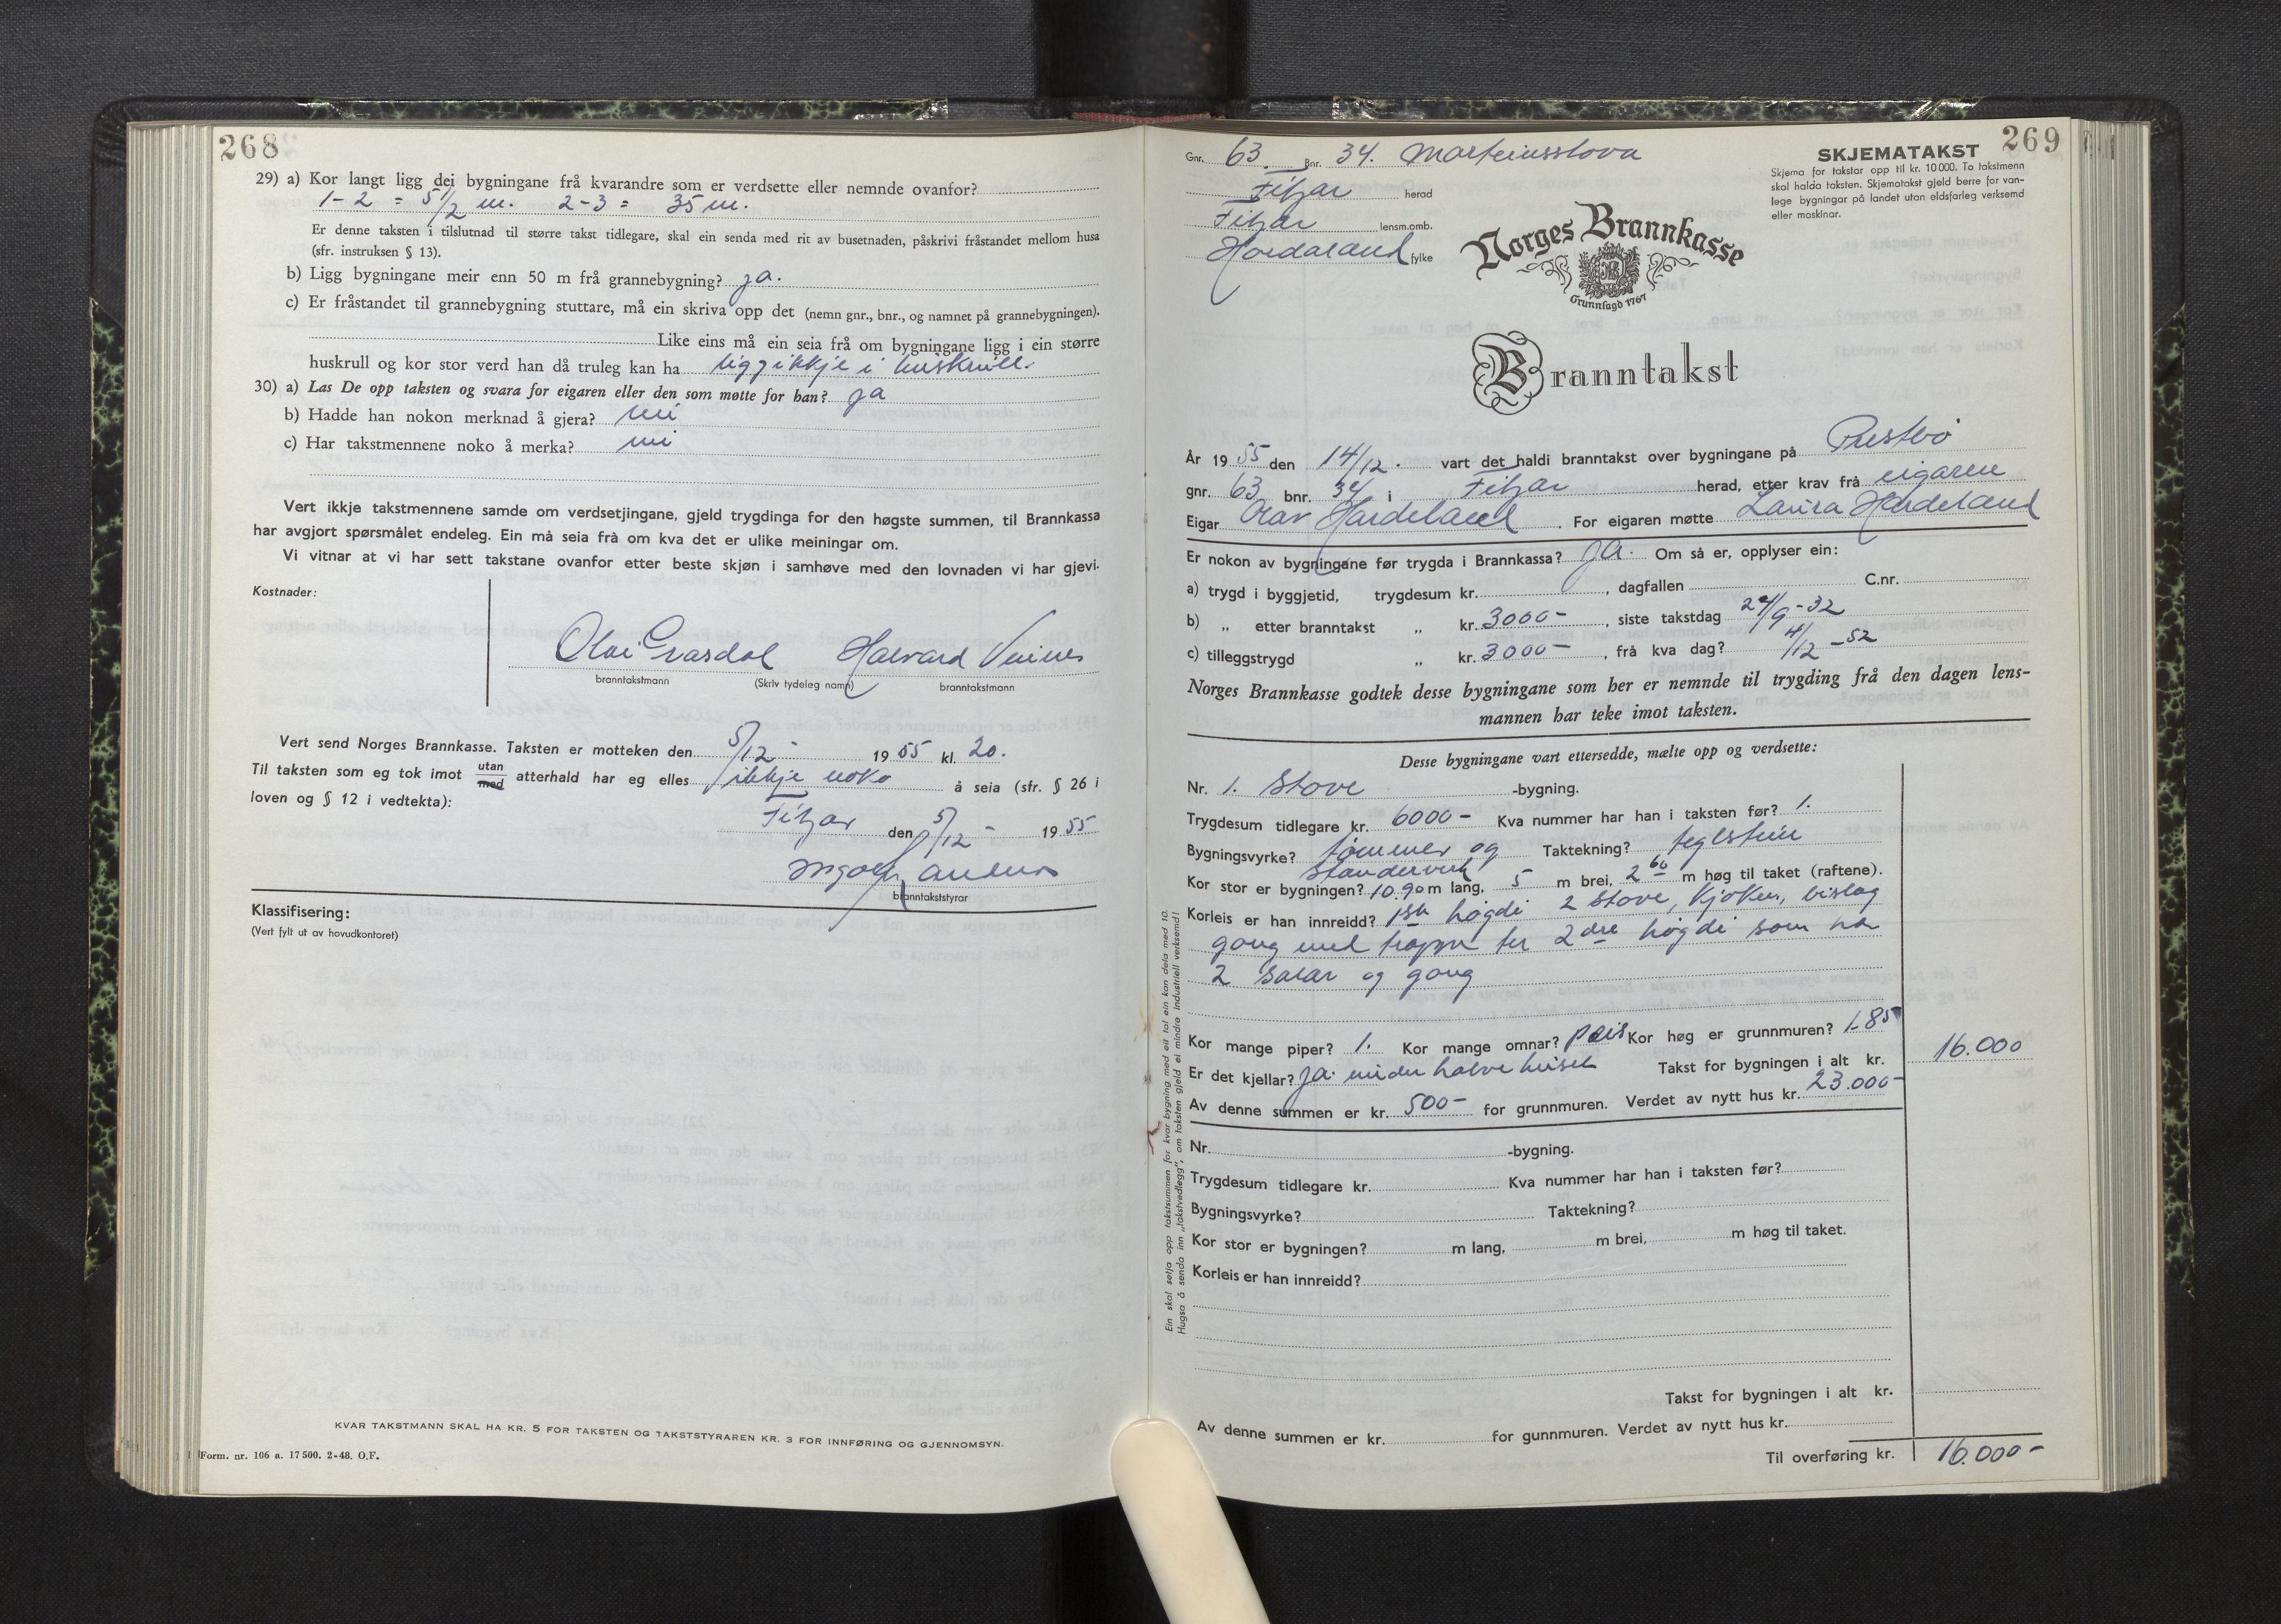 268
29) a) Kor langt ligg dei bygningane frå kvarandre som er verdsette eller nemnde ovanfor?
1-2 = 5 1/2 m. 2-3 = 35 m.
Er denne taksten i tilslutnad til større takst tidlegare, skal ein senda med rit av busetnaden, påskrivi fråstandet mellom husa
(sfr. instruksen § 13).
b) Ligg bygningane meir enn 50 m frå grannebygning? ja.
c) Er fråstandet til grannebygning stuttare, må ein skriva opp det (nemn gnr., bnr., og namnet på grannebygningen).
Like eins må ein seia frå om bygningane ligg i ein større
huskrull og kor stor verd han då truleg kan ha ligg ikkje i huskrull.
30) a) Las De opp taksten og svara for eigaren eller den som møtte for han? ja
b) Hadde han nokon merknad å gjera? nei
c) Har takstmennene noko å merka? nei
Vert ikkje takstmennene samde om verdsetjingane, gjeld trygdinga for den høgste summen, til Brannkassa
har avgjort spørsmålet endeleg. Ein må seia frå om kva det er ulike meiningar om.
Vi vitnar at vi har sett takstane ovanfor etter beste skjøn i samhøve med den lovnaden vi har gjevi.
Kostnader:
Olai Grasdal Halvard
branntakstmann (Skriv tydeleg namn) branntakstmann
Vert send Norges Brannkasse. Taksten er motteken den 5/12 - 1955 kl. 20.
Til taksten som eg tok imot utan med atterhald har eg elles ikkje noko å seia (sfr. § 26 i
loven og § 12 i vedtekta):
Fitjar den 5/12 - 1955
branntakststyrar
Klassifisering:
(Vert fylt ut av hovudkontoret)
KVAR TAKSTMANN SKAL HA KR. 5 FOR TAKSTEN OG TAKSTSTYRAREN KR. 3 FOR INNFØRING OG GJENNOMSYN.
Form. nr. 106 a. 17500. 2-48. O.F.
269
Gnr. 63. Bnr. 34. Marteinsstova
Fitjar herad
Fitjar lensm.omb.
Hordaland fylke
SKJEMATAKST
Skjema for takstar opp til kr. 10000. To takstmenn
skal halda taksten. Skjematakst gjeld berre for van-
lege bygningar på landet utan eldsfarleg verksemd
eller maskinar.
Norges Brannkasse
Grunnlagd 1767
Branntakst
År 1955 den 14/12. vart det haldi branntakst over bygningane på Prestbø
gnr. 63 bnr. 34 i Fitjar herad, etter krav frå eigaren
Eigar Olav Hardeland. For eigaren møtte Laura Hardeland
Er nokon av bygningane før trygda i Brannkassa? ja. Om så er, opplyser ein:
a) trygd i byggjetid, trygdesum kr. , dagfallen C.nr.
b) „ etter branntakst „ kr. 3000- , siste takstdag 24/9-32
c) tilleggstrygd „ kr. 3000- , frå kva dag? 4/12-52
Norges Brannkasse godtek desse bygningane som her er nemnde til trygding frå den dagen lens-
mannen har teke imot taksten.
Desse bygningane vart ettersedde, mælte opp og verdsette:
Nr. 1. Stove -bygning.
Trygdesum tidlegare kr. 6000- Kva nummer har han i taksten før? 1.
Bygningsvyrke? tømmer og Taktekning? teglstein
standerverk
Kor stor er bygningen? 10.90 m lang, 5 m brei, 2 60 m høg til taket (raftene).
Korleis er han innreidd? 1ste høgdi 2 stove, kjøken, bislag
gang med trappe ter 2dre høgdi som ha
2 salar og gang
Kor mange piper? 1. Kor mange omnar? peis Kor høg er grunnmuren? 1-85
Er det kjellar? ja. under halve huset Takst for bygningen i alt kr. 16.000
Av denne summen er kr. 500- for grunnmuren. Verdet av nytt hus kr. 23.000-
Nr. -bygning.
Trygdesum tidlegare kr. Kva nummer har han i taksten før?
Bygningsvyrke? Taktekning?
Kor stor er bygningen? m lang, m brei, m høg til taket.
Korleis er han innreidd?
Takst for bygningen i alt kr.
Av denne summen er kr. for gunnmuren. Verdet av nytt hus kr.
Til overføring kr. 16.000-
Ein skal setja opp takstsummen for kvar bygning med eit tal ein kan dela med 10.
Hugsa å senda inn „takstvedlegg“, om taksten gjeld ei mindre industriell verksemd!